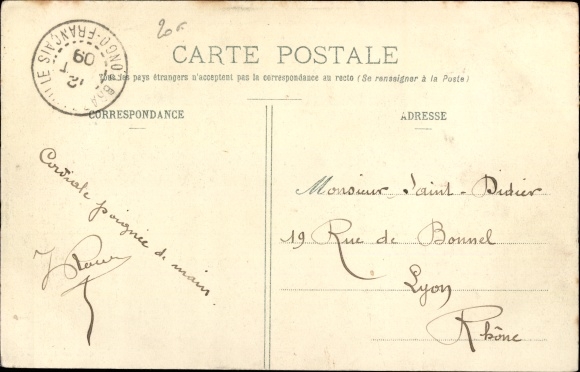 20 F.
CARTE POSTALE
Tous les pays étrangers n'acceptent pas la correspondance au recto (Se renseigner à la Poste)
CORRESPONDANCE
ADRESSE
CONGO-FRANÇAIS
12
09
Cordiale poignée de main.
Monsieur Saint-Didier
19 Rue de Bonnel
Lyon
Rhône